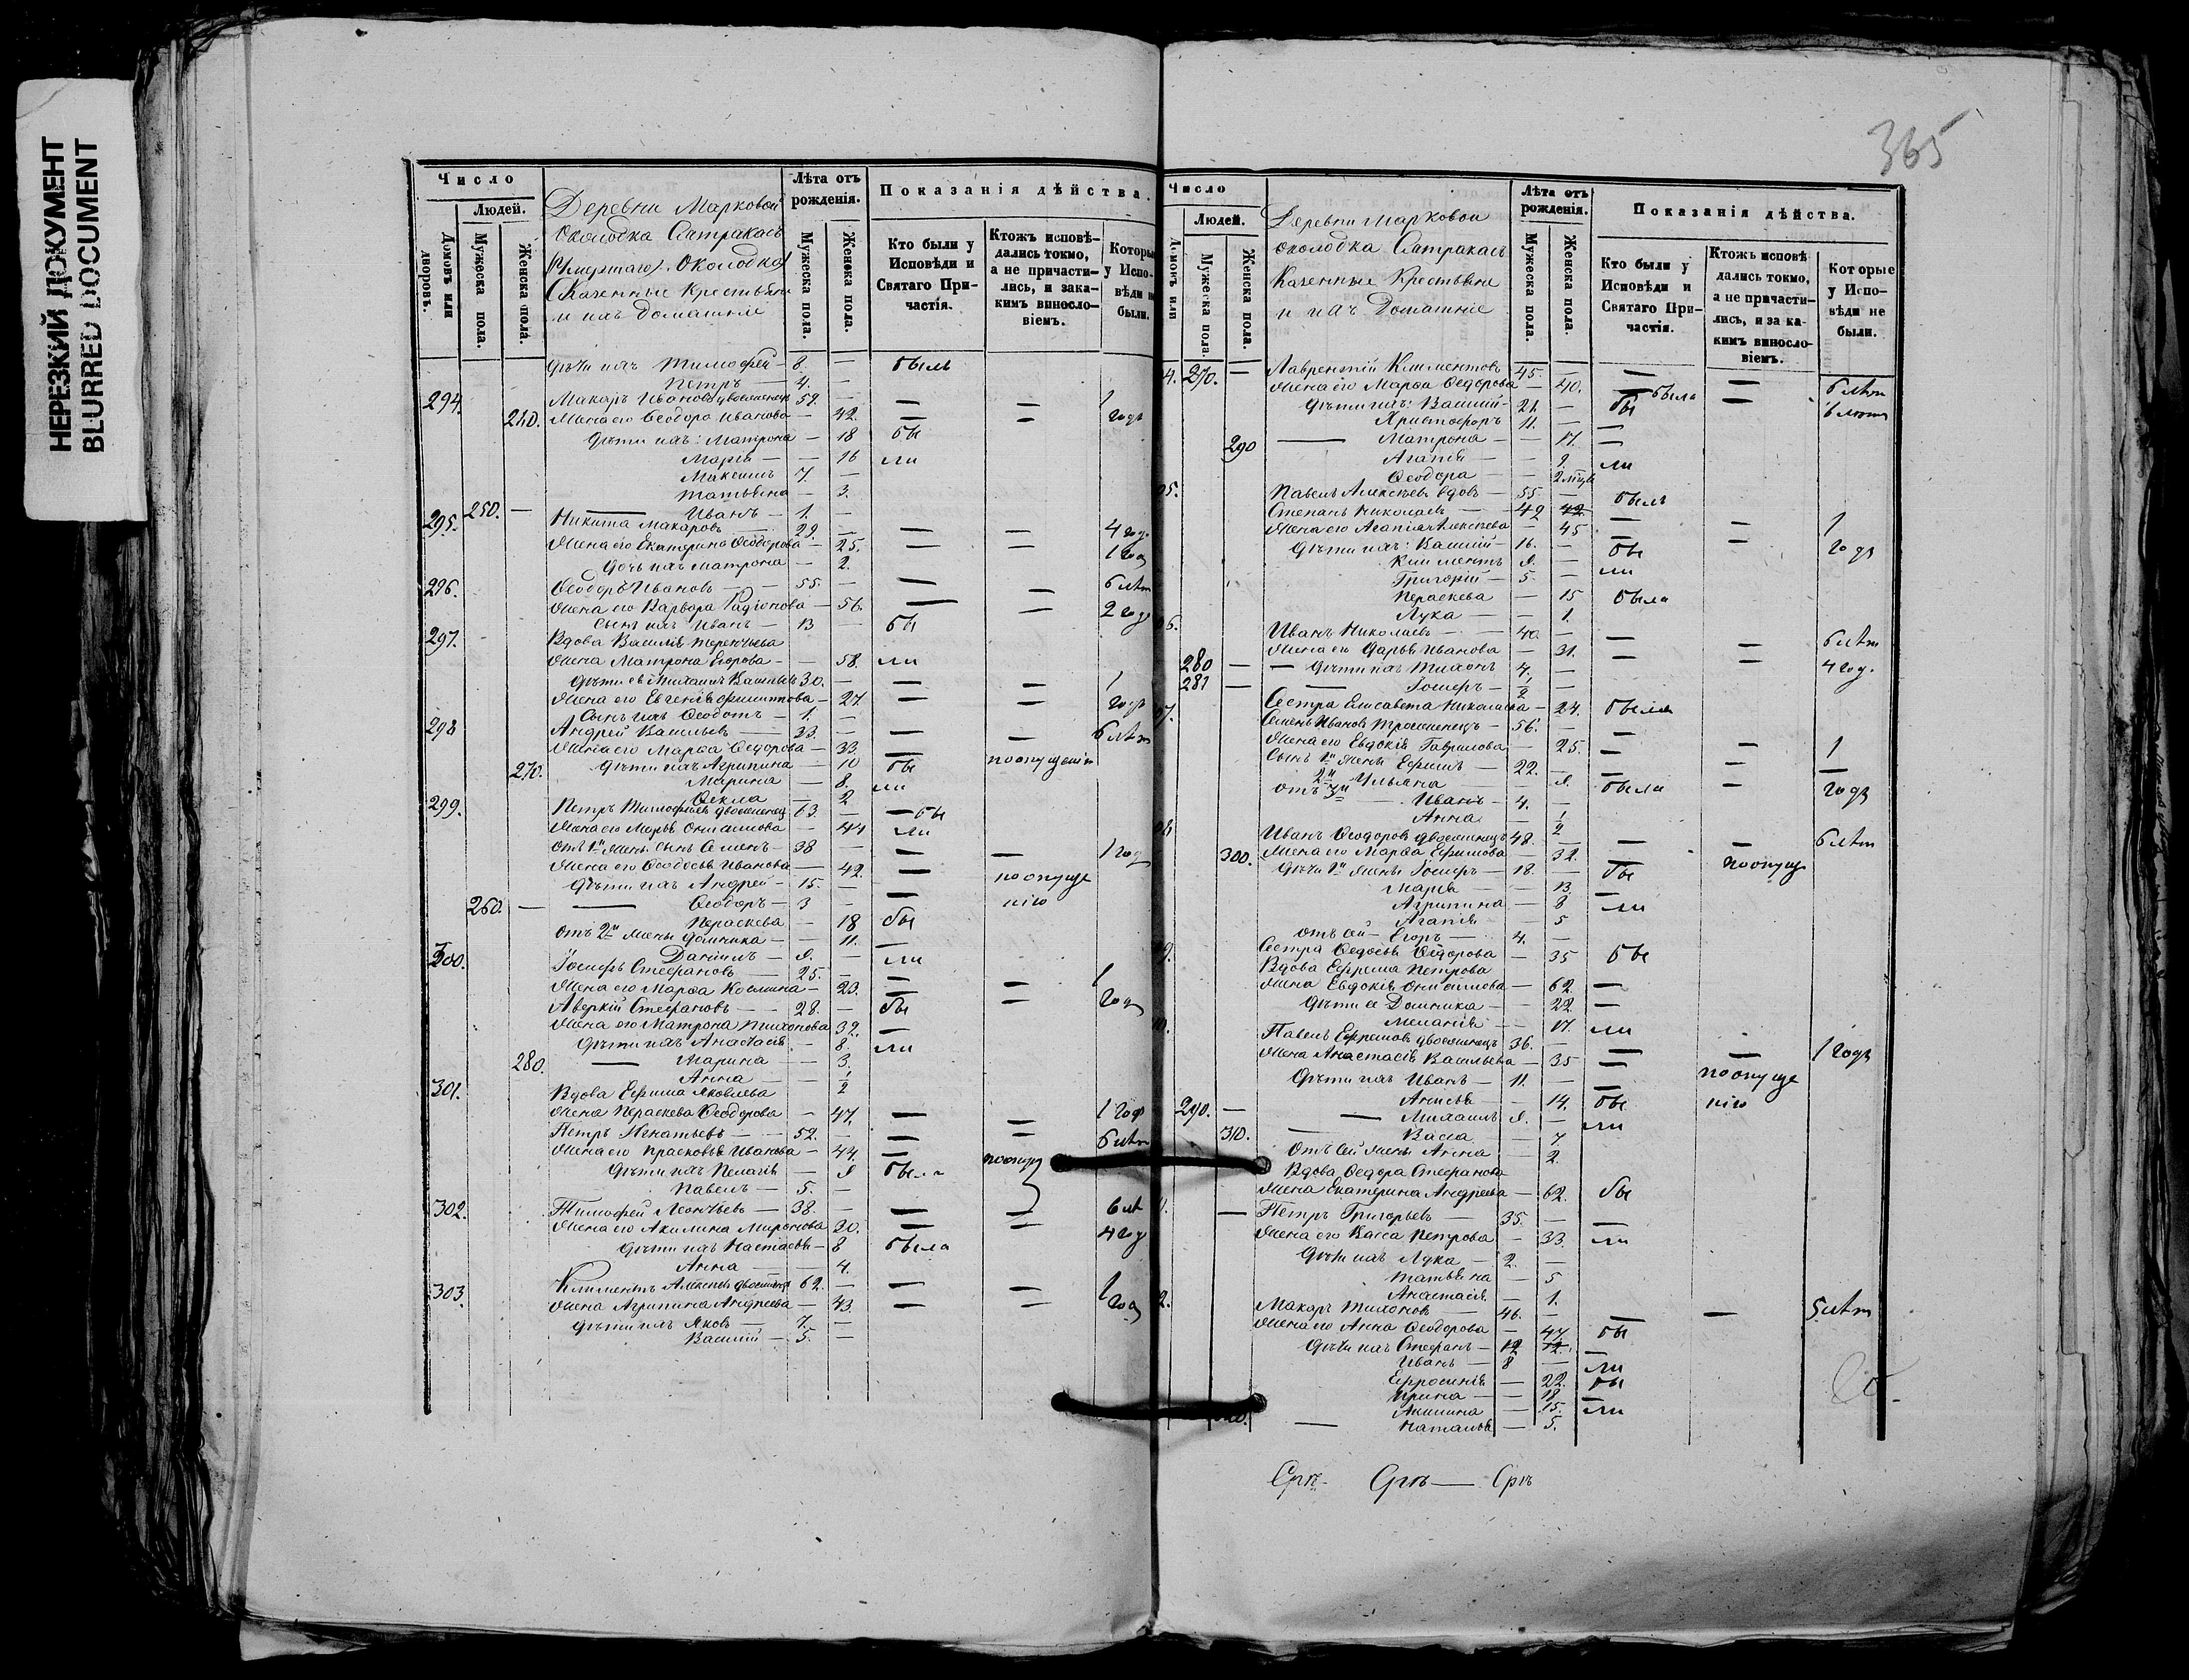 НЕРЕЗКИЙ ДОКУМЕНТ
BLURRED DOCUMENT
Число
Людей.
Домовъ или дворовъ.
Мужеска пола.
Женска пола.
Деревни Марковой
околодка
Околодка
Казенные Крестьяне
и ихъ домашніе
Лѣта отъ рожденія.
Мужеска пола.
Женска пола.
Показанія дѣйства.
Кто были у Исповѣди и Святаго Причастія.
Ктожъ исповѣдались токмо, а не причастились, и за какимъ винословіемъ.
Которые у Исповѣди не были.
дѣти ихъ Тимофей — 8. — былъ
Петръ — 4. —
294. Макаръ Ивановъ двоеженецъ 59. — — — 1
240. Жена его Ѳеодора Иванова — 42. — — годъ
дѣти ихъ: Матрона — 18 бы
Марѳа — — 16 ли
Максимъ 7. —
Татьяна — 3.
250. — Иванъ — 1. —
295. Никита Макаровъ — 29. — — — 4 год.
Жена его Екатерина Ѳеодорова — 25. — — 1 год
дочь ихъ Матрона — 2.
296. Ѳеодоръ Ивановъ — 55. — — — 6 лѣт
Жена его Варвара Радіонова — 56. — — 2 год
Сынъ ихъ Иванъ — 13 — бы
297. Вдова Василія Терентьева
Жена Матрона Егорова — — 58. ли
дѣти ея Михаилъ Васильевъ 30. — — — 1
Жена его Евгенія Филиппова — 27. — — годъ
Сынъ ихъ Ѳеодотъ — 1. —
298 Андрей Васильевъ — 33. — — — 6 лѣт
Жена его Марѳа Ѳедорова — 33. —
270. дѣти ихъ Агрипина — 10 бы по опущенію
Марина — 8. ли
Ѳекла — 2
299. Петръ Тимофѣевъ двоеженец 63. — — бы
Жена его Марья Онисимова — 44 ли
отъ 1й жены сынъ Семенъ — 38 — — — 1 год
Жена его Ѳеодосья Иванова — 42. — по опуще
дѣти ихъ Андрей — 15. — — нію
260. — Ѳеодоръ — 3 —
Параскева — 18 бы
отъ 2й жены Домника — — 11. —
Даніилъ — 9. — ли
300. Іосифъ Стефановъ — 25. — — — 1
Жена его Марѳа Козмина — 23. — — год
Аверкій Стефановъ — 28. — бы
Жена его Матрона Тихонова 32. —
дѣти ихъ Анастасія — 8. ли
280. — Марина — 3.
Анна — — 1/2
301. Вдова Ефима Яковлева
Жена Параскева Ѳеодорова — 47. — — 1 год
Петръ Игнатьевъ — 52. — — — 6 лѣт
Жена его Прасковья Иванова — 44. — по опущ
дѣти ихъ Пелагія — 9 была
Павелъ — 5. —
302. Тимофей Леонтьевъ — 38. — — — 6 лѣ
Жена его Акилина Миронова 30. — — 4 год
дѣти ихъ Настасья — 8 была
Анна — — 4.
303. Климентъ Алексѣевъ двоеженецъ 62. — — — 1
Жена Агрипина Андреева — 43. — — год
дѣти ихъ Яковъ — 7. —
Василій — 5. —
365
Число
Людей.
Домовъ или
Мужеска пола.
Женска пола.
Деревни Марковой
околодка
Казенные Крестьяне
и ихъ Домашніе
Лѣта отъ рожденія.
Мужеска пола.
Женска пола.
Показанія дѣйства.
Кто были у Исповѣди и Святаго Причастія.
Ктожъ исповѣдались токмо, а не причастились, и за какимъ винословіемъ.
Которые у Исповѣди не были.
4. 270. — Лаврентій Климентовъ 45. — — — 6 лѣт
Жена его Марѳа Ѳедорова — 40. — была — 6 лѣт
дѣти ихъ: Василій — 21 — бы
Христофоръ 11. —
290 — Матрона — — 17. —
Агапія — — 9. ли
Ѳеодора — — 2 мѣц
05. Павелъ Алексѣевъ вдовъ — 55 — былъ
Степанъ Николаевъ — 42 — — — 1
Жена его Агапія Алексѣева — 45 — — годъ
дѣти ихъ: Василій — 16. — бы
Климентъ 9. — ли
Григорій — 5. —
Параскева — 15 была
Лука — — 1.
06. Иванъ Николаевъ — — 40 — — — 6 лѣт
Жена его Дарья Иванова — 31. — — 4 год.
280 — — дѣти ихъ Тихонъ 4. —
281 — — Іосифъ — 1/2 —
Сестра Елисавета Николаева — 24. была
07. Семенъ Ивановъ троеженецъ — 56. — — — 1
Жена его Евдокія Гаврилова — 25. — — —
Сынъ 1й жены Ефимъ — 22. — — — годъ
2й Ульяна — — 9. была
отъ 3й — Иванъ — 4. —
Анна — — 1/2
08 Иванъ Ѳеодоровъ двоеженецъ 48. — — — 6 лѣт
300. Жена его Марѳа Ефимова — 32. — по опуще
дѣти 1й жены Іосифъ — 18. — бы
Марѳа — — 13. —
Агрипина — 8 ли
Агапія — 5
отъ сей — Егоръ — 4. —
Сестра Ѳедосья Ѳедорова — 35 бы
9. Вдова Ефрема Петрова
Жена Евдокія Онисимова — 62. —
дѣти ея Домника — — 22. —
Меланія — — 17. ли
10. Павелъ Ефремовъ двоеженецъ 36. — — — 1 годъ
Жена Анастасія Васильева — 35 — по опуще
дѣти ихъ Иванъ — 11. — — нію
Анисья — — 14. бы
290. — — Михаилъ 9. — ли
310. — Васса — — 7.
Отъ сей жены Анна — 2.
Вдова Ѳедора Стефанова
Жена Екатерина Андреева — 62. бы
— Петръ Григорьевъ — 35. — —
Жена его Васса Петрова — 33. ли
дѣти ихъ Лука — 2. —
Татьяна — 5
Анастасія — 1.
2. Макаръ Тихоновъ — 46. — — — 5 лѣт
Жена его Анна Ѳеодорова — 47. бы
дѣти ихъ Стефанъ — 12 —
Иванъ — 8 — ли
Ефросинія — 22. бы
Ирина — — 18. —
Акилина — 15. ли
— Наталья — 5.